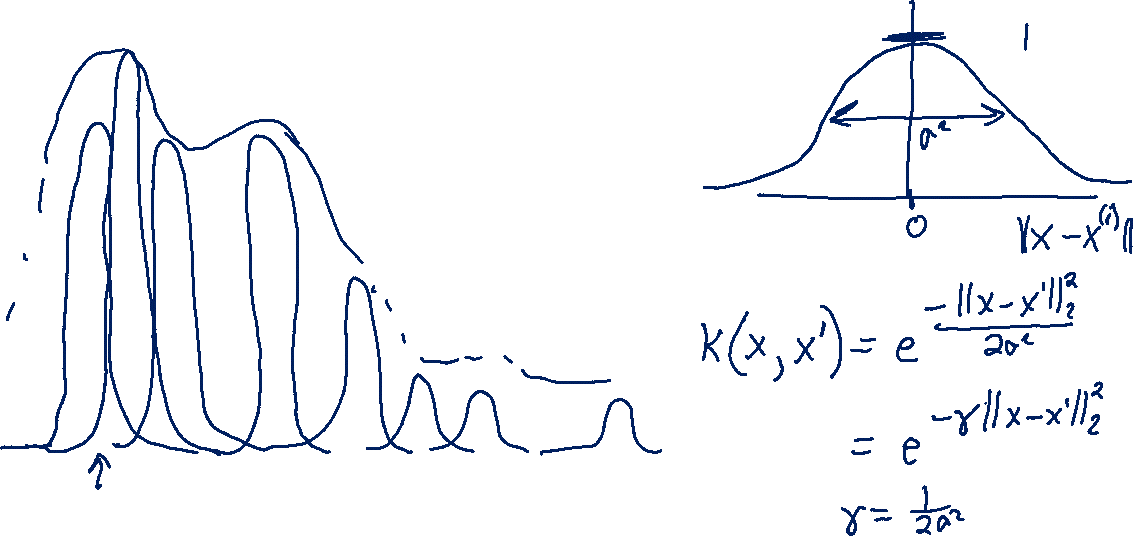 1
σ²
0
‖x - x⁽ⁱ⁾‖
K(x, x') = e^{-‖x-x'‖₂² / 2σ²}
= e^{-γ‖x-x'‖₂²}
γ = 1/2σ²